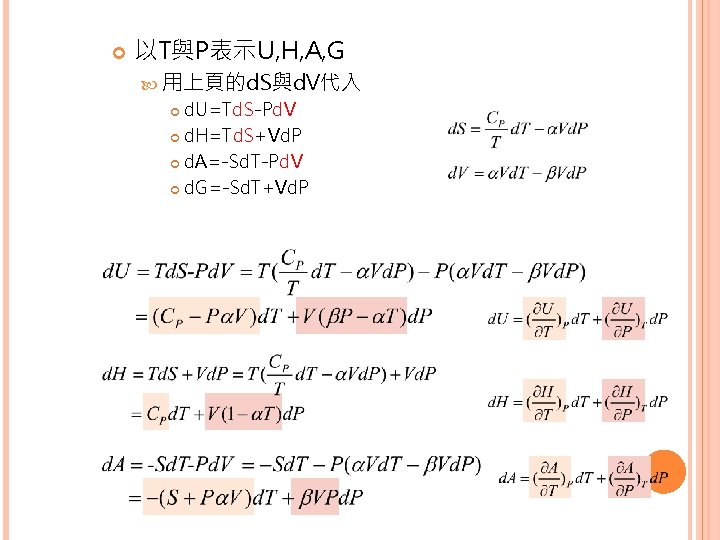 以T與P表示U, H, A, G
用上頁的d.S與d.V代入
d.U=Td.S-Pd.V
d.H=Td.S+Vd.P
d.A=-Sd.T-Pd.V
d.G=-Sd.T+Vd.P
dS = \frac{C_P}{T} dT − αVdP
dV = αVdT − βVdP
dU = TdS-PdV = T(\frac{C_P}{T} dT − αVdP) − P(αVdT − βVdP)
= (C_P − PαV)dT + V(βP − αT)dP
dU = (\frac{∂U}{∂T})_P dT + (\frac{∂U}{∂P})_T dP
dH = TdS + VdP = T(\frac{C_P}{T} dT − αVdP) + VdP
= C_P dT + V(1 − αT)dP
dH = (\frac{∂H}{∂T})_P dT + (\frac{∂H}{∂P})_T dP
dA = -SdT-PdV = −SdT − P(αVdT − βVdP)
= −(S + PαV)dT + βVPdP
dA = (\frac{∂A}{∂T})_P dT + (\frac{∂A}{∂P})_T dP